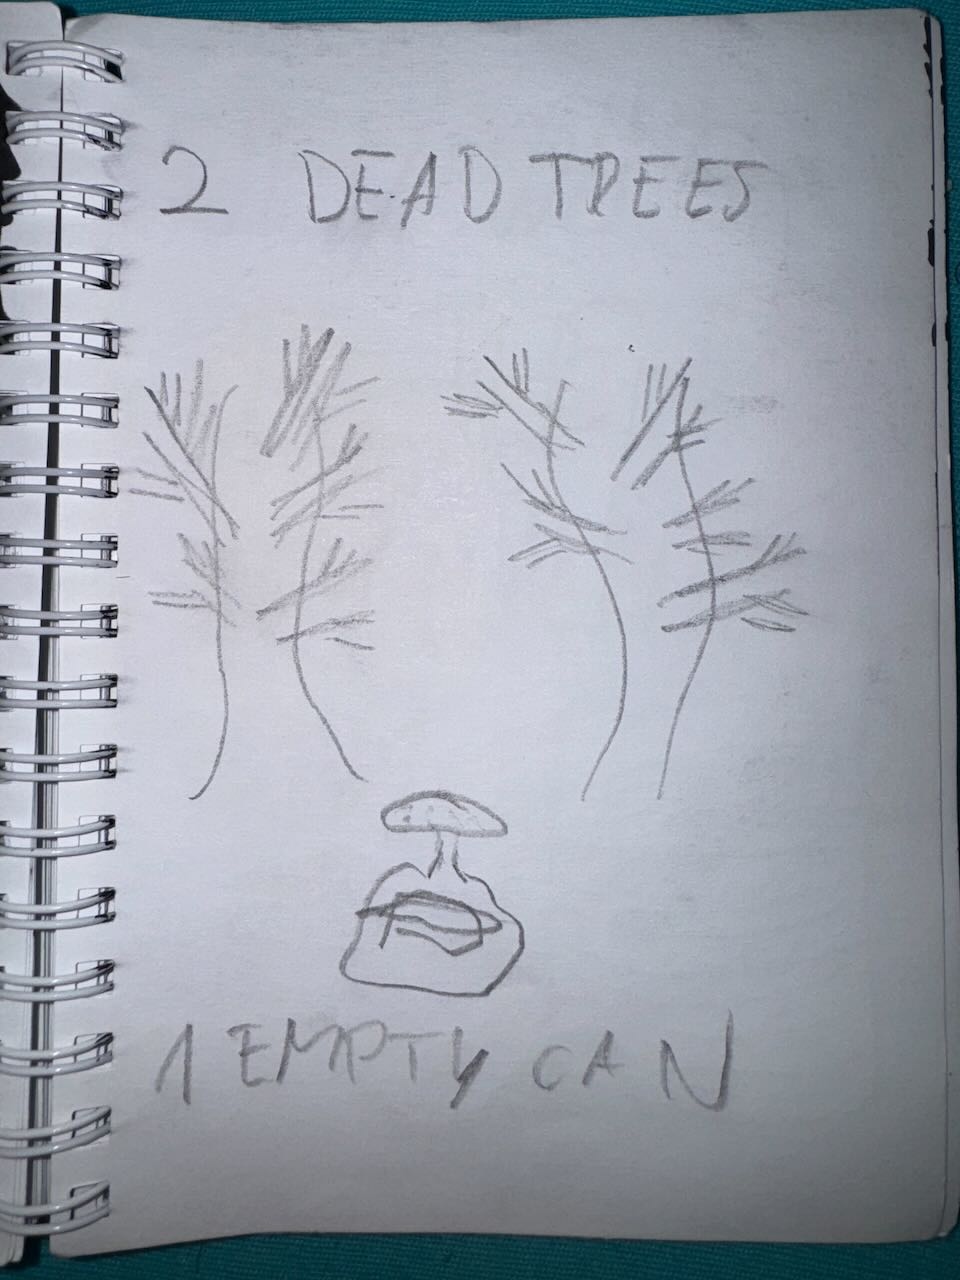 2 DEAD TREES
1 EMPTY CAN